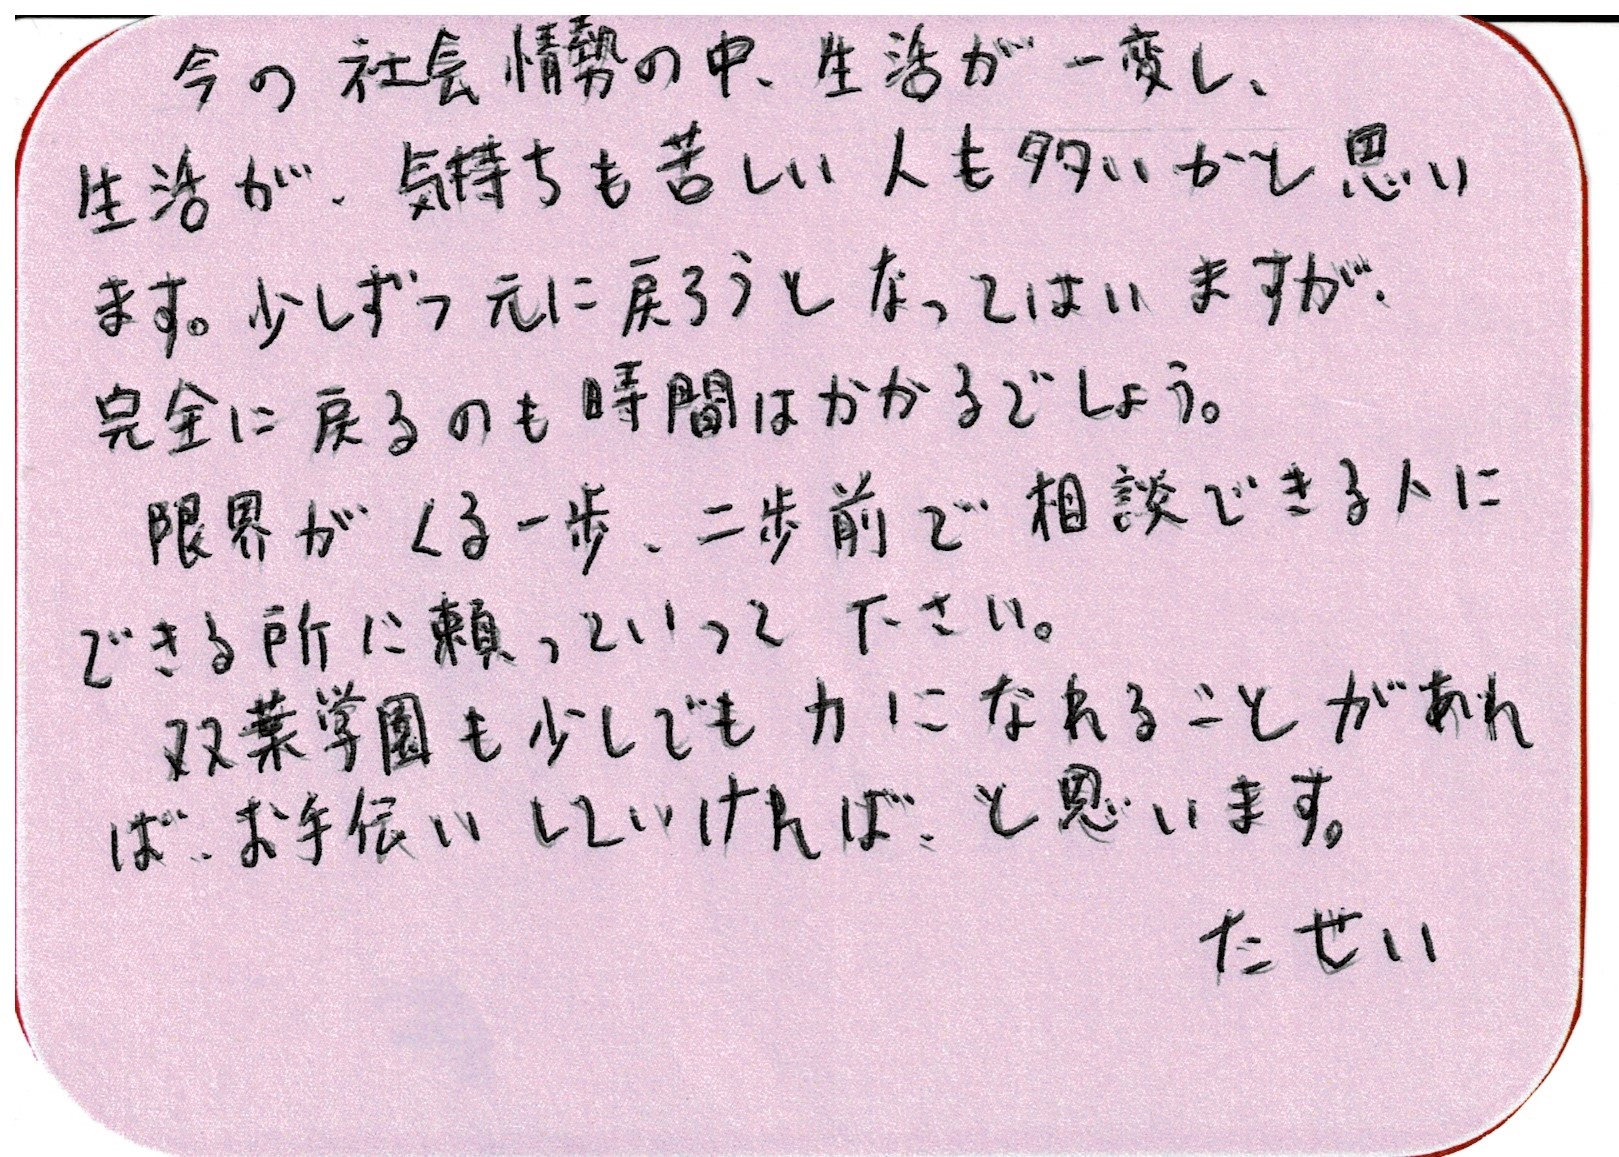 今の社会情勢の中、生活が一変し、
生活が、気持ちも苦しい人も多いかと思い
ます。少しずつ元に戻ろうとなってはいますが、
完全に戻るのも時間はかかるでしょう。
限界がくる一歩、二歩前で相談できる人に
できる所に頼っていって下さい。
双葉学園も少しでも力になれることがあれ
ば、お手伝いしていければ、と思います。
たせい